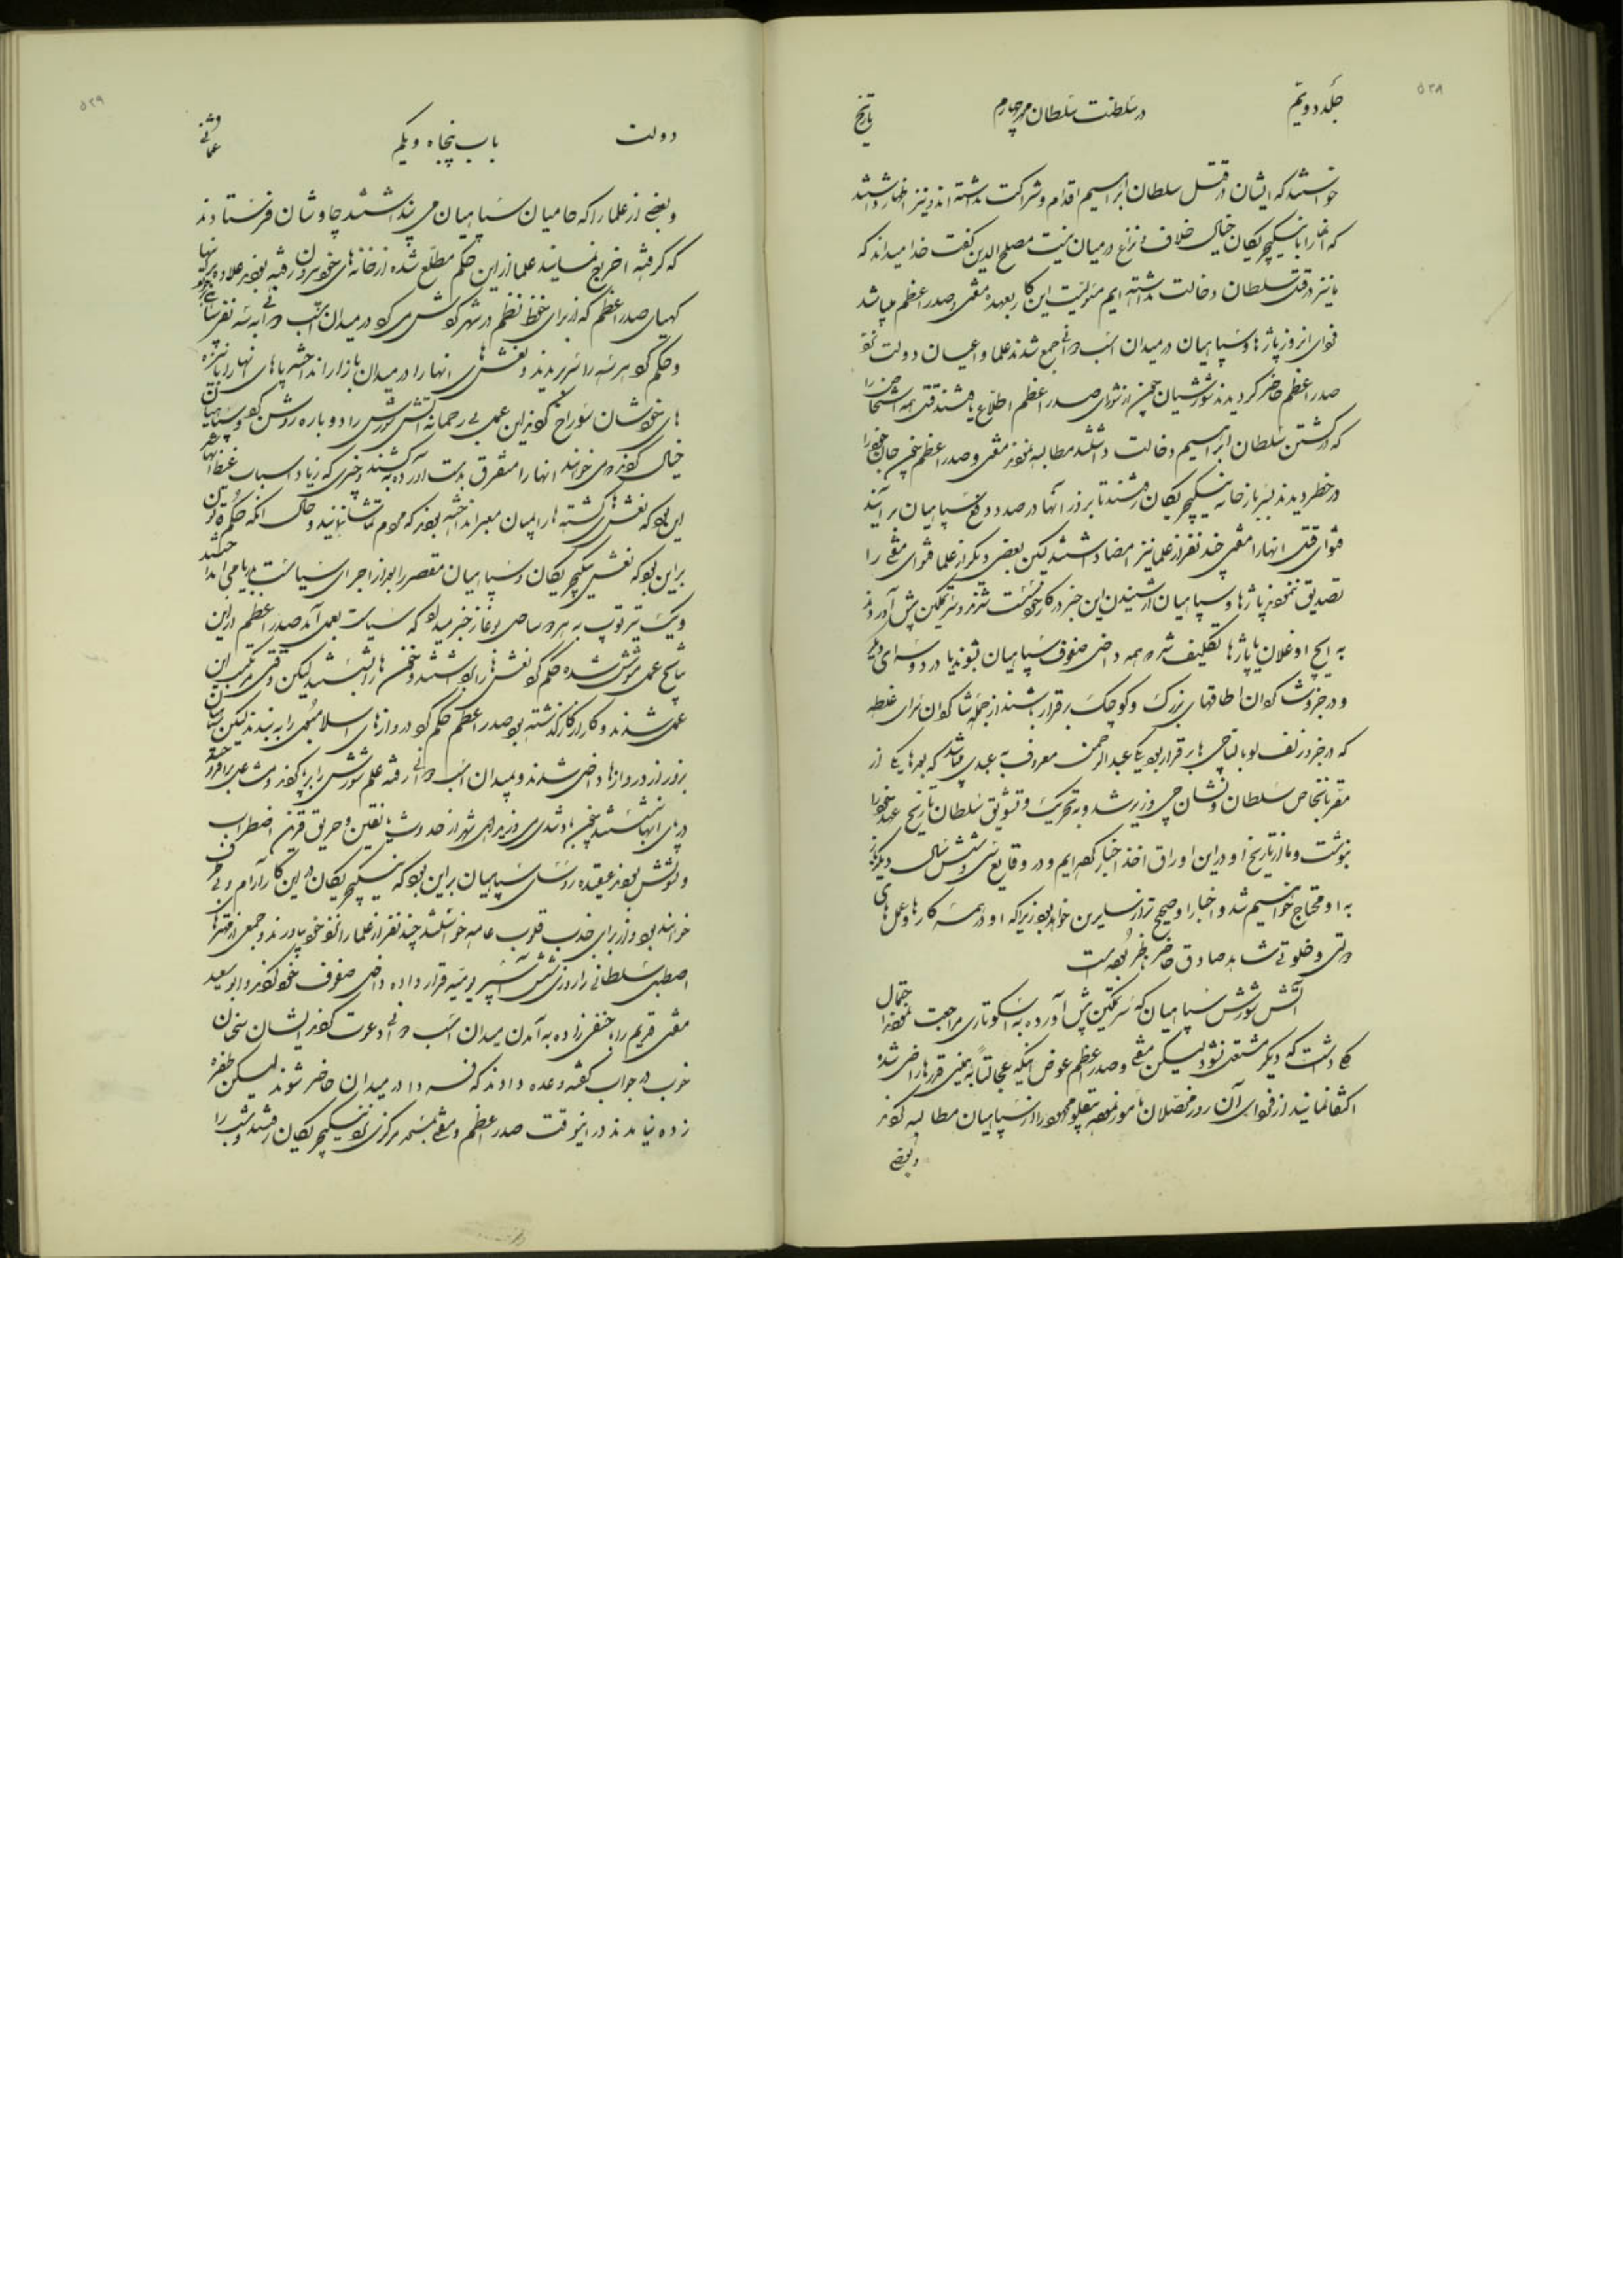 ۵۲۸
جلد دویم
در سلطنت سلطان محمد چهارم
تاریخ
خواستند که ایشان در قتل سلطان ابراهیم اقدام و شراکت نداشته اند و نیز اظهار داشتند
که آنها را با ینکیچریکان خیال خلاف و نزاع در میان نیست مصلح الدین گفت خدا میداند که
ما نیز در قتل سلطان دخالت نداشته ایم مسئولیت این کار بعهده مفتی و صدر اعظم میباشد
فردای انروز پاژها و سپاهیان در میدان اسب دوانی جمع شدند علما و اعیان دولت نزد
صدر اعظم حاضر کردیدند شورشیان چون از شورای صدر اعظم اطلاع یافتند قتل همه اشخاص را
که در کشتن سلطان ابراهیم دخالت داشتند مطالبه نمودند مفتی و صدر اعظم چون جان خود را
در خطر دیدند بسربازخانه ینکیچریکان رفتند تا بزور آنها در صدد دفع سپاهیان برآیند
فتوای قتل انها را مفتی چند نفر از علما نیز امضا داشتند لیکن بعضی دیکر از علما فتوای مفتی را
تصدیق ننمودند پاژها و سپاهیان از شنیدن این خبر در کار خود سست شدند و سر تمکین پیش آوردند
به ایچ اوغلان یا پاژها تکلیف شد که همه داخل صفوف سپاهیان شوند یا در دو سرای دیکر
و در جزو شاکردان اطاقهای بزرک و کوچک برقرار باشند از جمله شاکردان سرای غلطه
که در جزو زلف لو بالتاجی ها برقرار بود یکی عبدالرحمن معروف به عبدی پاشا شد که بعدها یکی از
مقربان خاص سلطان و نشان چی وزیر شد و به تحریک و تشویق سلطان تاریخ عهد خود را
نوشت و ما از تاریخ او در این اوراق اخذ اخبار کرده ایم و در وقایع سی و شش سال دیکر نیز
به او محتاج خواهیم شد و اخبار او صحیح تر از سایرین خواهد بود زیرا که او در همه کارها و عمل های
دولتی و خلوتی شاهد صادق حاضر و ناظر بوده است
آتش شورش سپاهیان که سر تمکین پیش آورده به اسکوتاری مراجعت نمودند احتمال
کلی داشت که دیکر مشتعل نشود لیکن مفتی و صدر اعظم عوض اینکه عجالتاً به همین قدرها راضی شده
اکتفا نمایند از فردای آن روز محصلان مامور نموده تنخواه را از سپاهیان مطالبه کردند
و بعضی
۵۲۹
دولت
باب پنجاه و یکم
عثمانی
و بعضی از علما را که حامیان سپاهیان می پنداشتند چاوشان فرستادند
که کرفته اخراج نمایند علما از این حکم مطلع شده از خانه های خود بیرون رفته بودند علاوه بر اینها
کهیای صدر اعظم که از برای حفظ نظم در شهر کردش می کرد در میدان اسب دوانی به سه نفر سپاهی برخورد
و حکم کرد هر سه را سر بریدند و نعش های انها را در میدان بازار انداخته پاهای انها را با نیزه
های خودشان سوراخ کردند این عمل بی رحمانه آتش شورش را دوباره روشن کرد و سپاهیان
خیال کردند می خواهند انها را متفرق بدست آورده بکشند و چیزی که زیاد اسباب غیظ انها شد
این بود که نعش کشته ها را میان معبر انداخته بودند که مردم تماشا نمایند و حال آنکه حکم قانون
بر این بود که نعش ینکیچریکان و سپاهیان مقصر را بعد از اجرای سیاست بدریا می انداختند
و یک تیر توپ به هر دو ساحل بوغاز خبر میداد که سیاست بعمل آمد صدر اعظم از این
نتایج عمل مشوش شده حکم کرد نعش ها را برداشتند و خون ها را شستند لیکن وقتی مرتکب این
عمل شدند و کار از کار کذشته بود صدر اعظم حکم کرد دروازهای اسلامبول را به بندند لیکن سپاهیان
بزور از دروازها داخل شدند و بمیدان اسب دوانی رفته علم شورش را برپا کردند و مشاعل برافروخته
در پای انها نشستند چون باد شدیدی می وزید اهل شهر از حدوث یانقین و حریق قرین اضطراب
و تشویش بودند عقیده رؤسای سپاهیان بر این بود که ینکیچریکان در این کار آرام و بی طرف
خواهند بود و از برای جذب قلوب عامه خواستند چند نفر از علما را نزد خود بیاورند و جمعی از مهترهای
اصطبل سلطانی را روزی شش آسپر یومیه قرار داده داخل صفوف خود کردند و ابو سعید
مفتی قدیم و حنفی زاده به آمدن میدان اسب دوانی دعوت کردند ایشان سخنان
خوب در جواب کفته وعده دادند که فردا در میدان حاضر شوند لیکن طفره
زده نیامدند در اینوقت صدر اعظم و مفتی بمرکز ینکیچریکان رفتند شب را